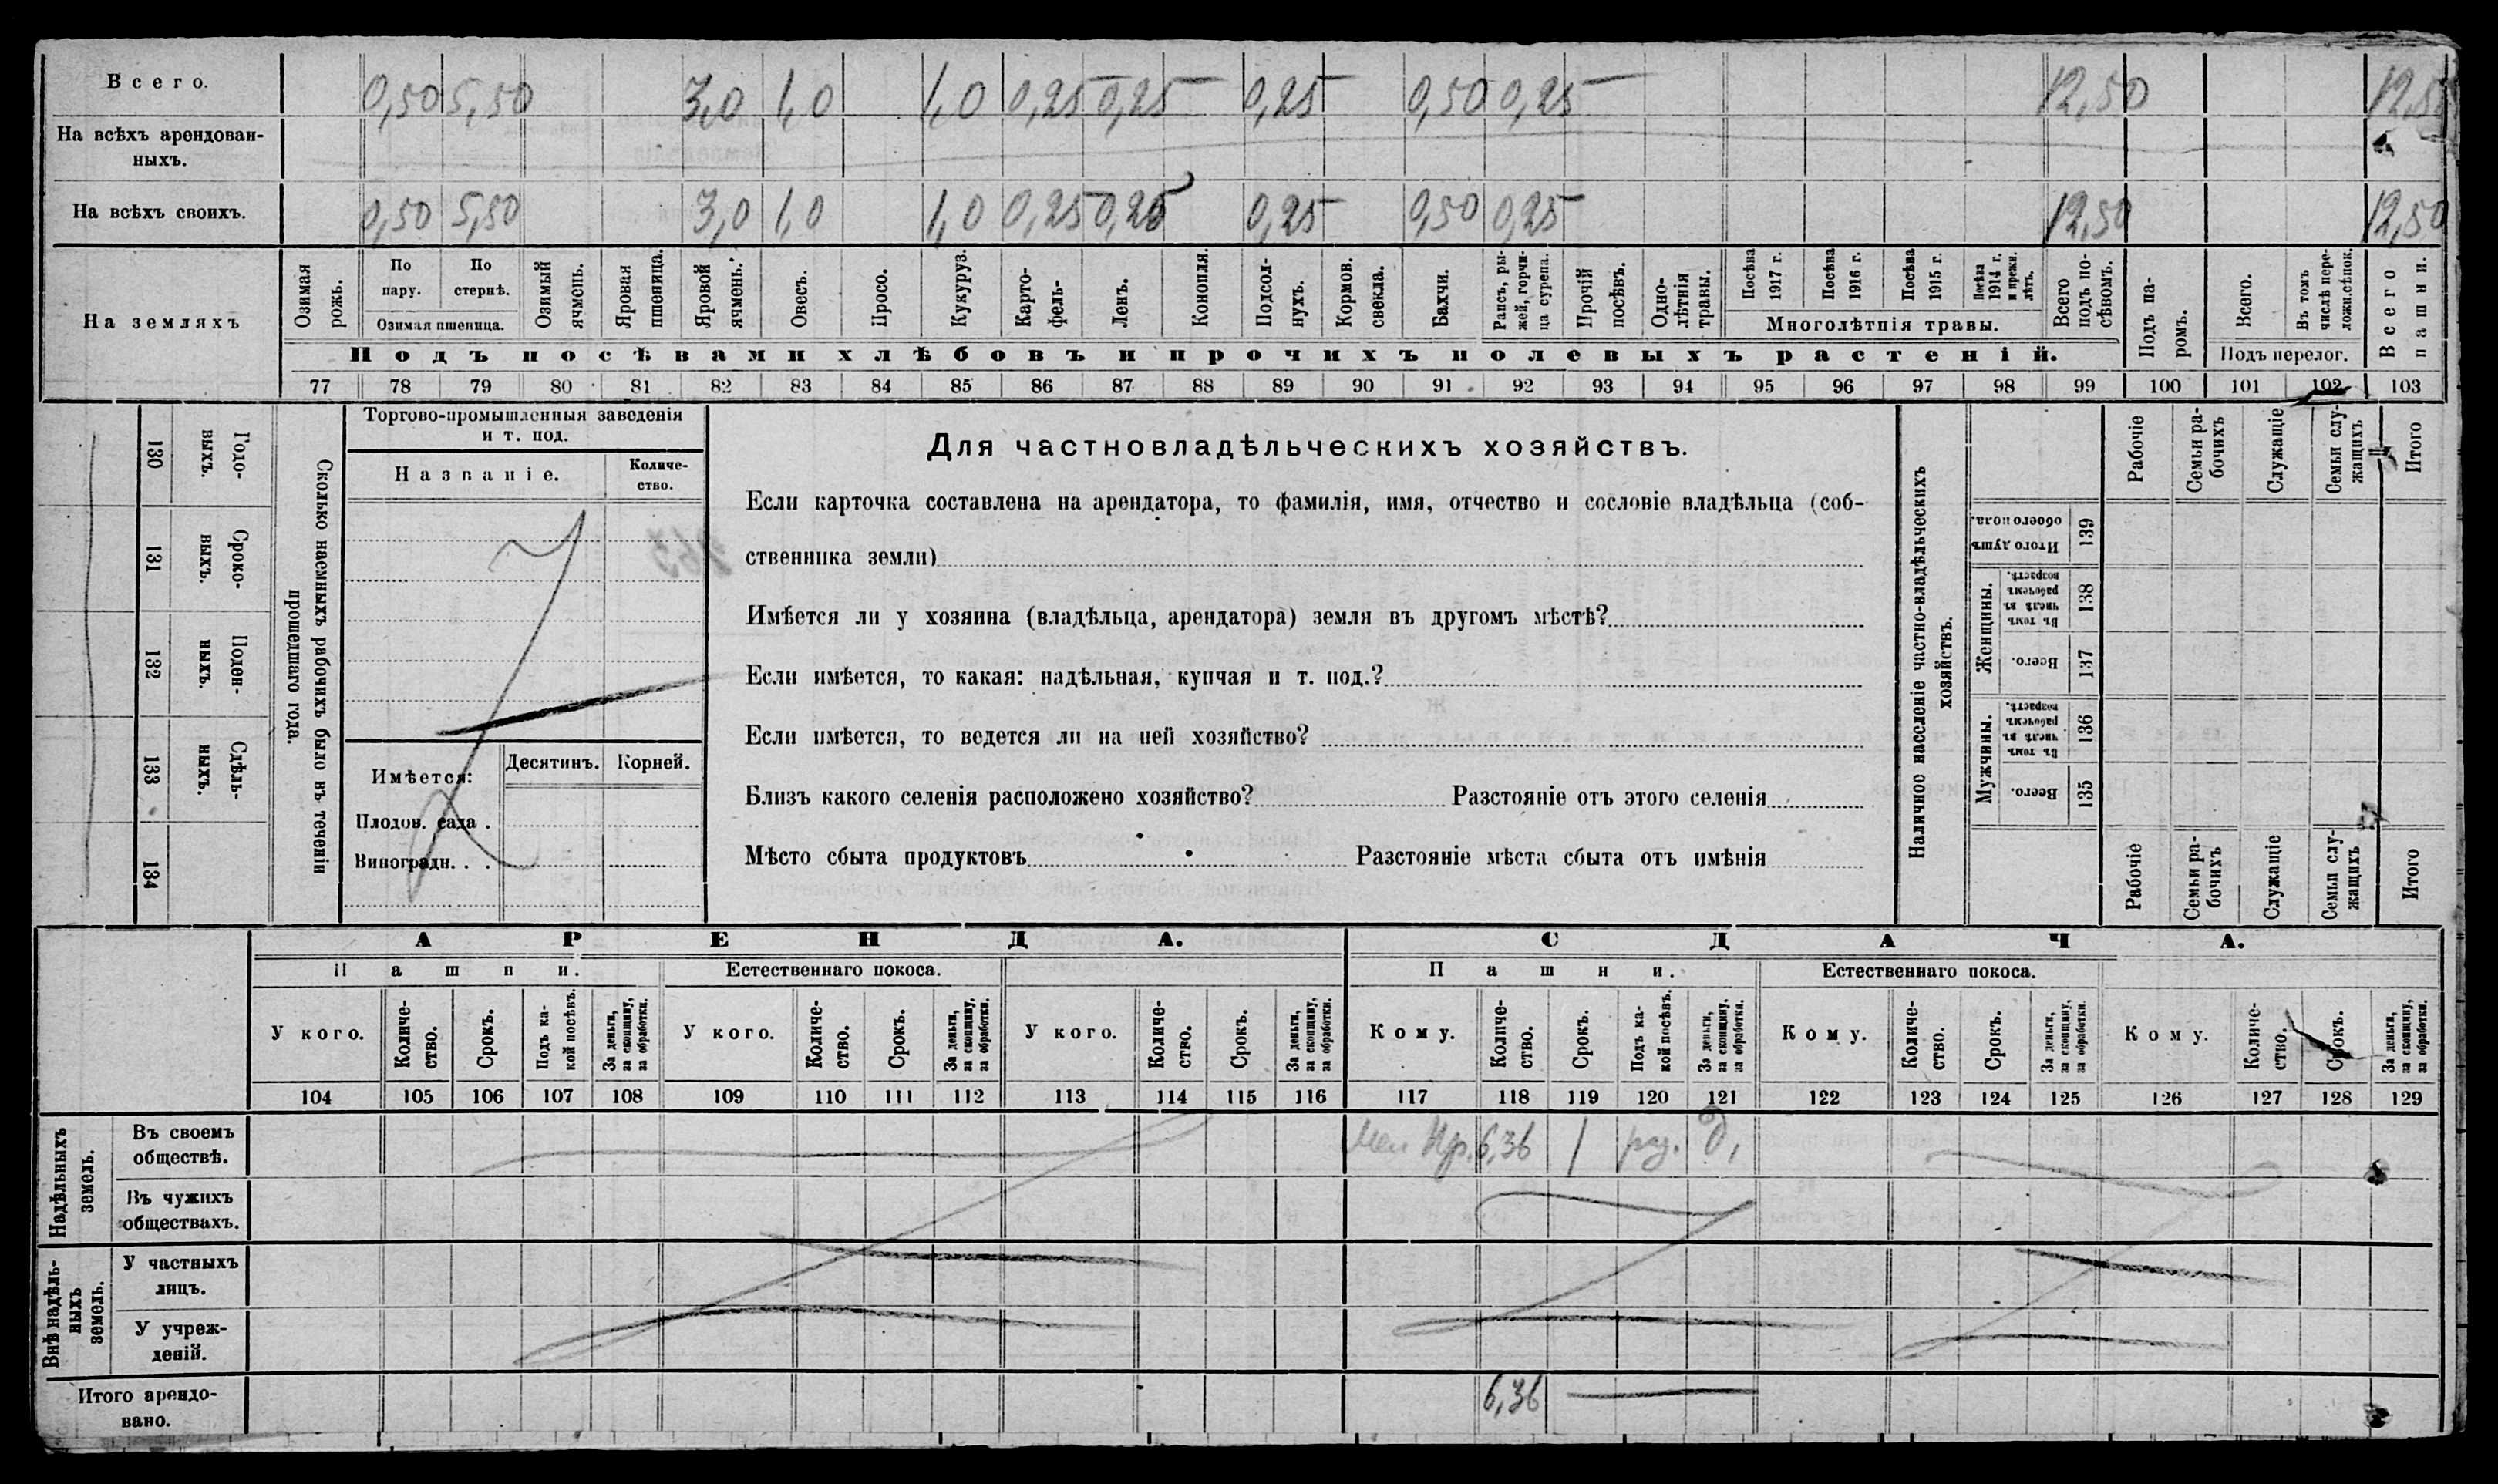 Всего. 0,50 5,50 3,0 1,0 1,0 0,25 0,25 0,25 0,50 0,25 12,50 12,50
На всѣхъ арендован-
ныхъ.
На всѣхъ своихъ. 0,50 5,50 3,0 1,0 1,0 0,25 0,25 0,25 0,50 0,25 12,50 12,50
На земляхъ
Озимая рожь.
По пару.
По стернѣ.
Озимая пшеница.
Озимый ячмень.
Яровая пшеница.
Яровой ячмень.
Овесъ.
Просо.
Кукуруз.
Карто-
фель-
Ленъ.
Конопля.
Подсол-
нухъ.
Кормов.
свекла.
Бахчи.
Рапсъ, ры-
жей, горчи-
ца сурепа.
Прочій
посѣвъ.
Одно-
лѣтнія
травы.
Посѣва
1917 г.
Посѣва
1916 г.
Посѣва
1915 г.
Посѣва
1914 г.
и прежн.
лѣтъ.
Многолѣтнія травы.
Всего
подъ по-
сѣвомъ.
Подъ па-
ромъ.
Всего.
Въ томъ
числѣ пере-
ложн.сѣнок.
Подъ перелог.
Всего
пашни.
Подъ посѣвами хлѣбовъ и прочихъ полевыхъ растеній.
77 78 79 80 81 82 83 84 85 86 87 88 89 90 91 92 93 94 95 96 97 98 99 100 101 102 103
130
Годо-
выхъ.
131
Сроко-
выхъ.
132
Поден-
ныхъ.
133
Сдѣль-
ныхъ.
134
Сколько наемныхъ рабочихъ было въ теченіи
прошедшаго года.
Торгово-промышленныя заведенія
и т. под.
Названіе.
Количе-
ство.
Имѣется:
Десятинъ. Корней.
Плодов. сада .
Виноградн. . .
Для частновладѣльческихъ хозяйствъ.
Если карточка составлена на арендатора, то фамилія, имя, отчество и сословіе владѣльца (соб-
ственника земли)
Имѣется ли у хозяина (владѣльца, арендатора) земля въ другомъ мѣстѣ?
Если имѣется, то какая: надѣльная, купчая и т. под.?
Если имѣется, то ведется ли на ней хозяйство?
Близъ какого селенія расположено хозяйство? Разстояніе отъ этого селенія
Мѣсто сбыта продуктовъ Разстояніе мѣста сбыта отъ имѣнія
Наличное населеніе частно-владѣльческихъ
хозяйствъ.
Рабочіе
Семьи ра-
бочихъ
Служащіе
Семьи слу-
жащихъ
Итого
Итого душъ
обоего пола.
139
Женщины.
Въ томъ
числѣ въ
рабочемъ
возрастѣ.
138
Всего.
137
Мужчины.
Въ томъ
числѣ въ
рабочемъ
возрастѣ.
136
Всего.
135
Рабочіе
Семьи ра-
бочихъ
Служащіе
Семьи слу-
жащихъ
Итого
АРЕНДА. СДАЧА.
Пашни. Естественнаго покоса. Пашни. Естественнаго покоса.
У кого.
Количе-
ство.
Срокъ.
Подъ ка-
кой посѣвъ.
За деньги,
за скопщину,
за обработки.
У кого.
Количе-
ство.
Срокъ.
За деньги,
за скопщину,
за обработки.
У кого.
Количе-
ство.
Срокъ.
За деньги,
за скопщину,
за обработки.
Кому.
Количе-
ство.
Срокъ.
Подъ ка-
кой посѣвъ.
За деньги,
за скопщину,
за обработки.
Кому.
Количе-
ство.
Срокъ.
За деньги,
за скопщину,
за обработки.
Кому.
Количе-
ство.
Срокъ.
За деньги,
за скопщину,
за обработки.
104 105 106 107 108 109 110 111 112 113 114 115 116 117 118 119 120 121 122 123 124 125 126 127 128 129
Надѣльныхъ
земель.
Въ своемъ
обществѣ.
6,36 1 д,
Въ чужихъ
обществахъ.
Внѣ надѣль-
ныхъ
земель.
У частныхъ
лицъ.
У учреж-
деній.
Итого арендо-
вано.
6,36